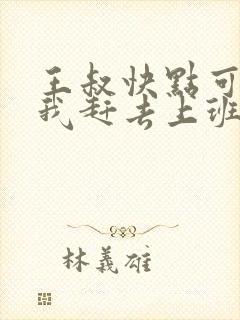 王叔快點可
我赶去上班
林義雄